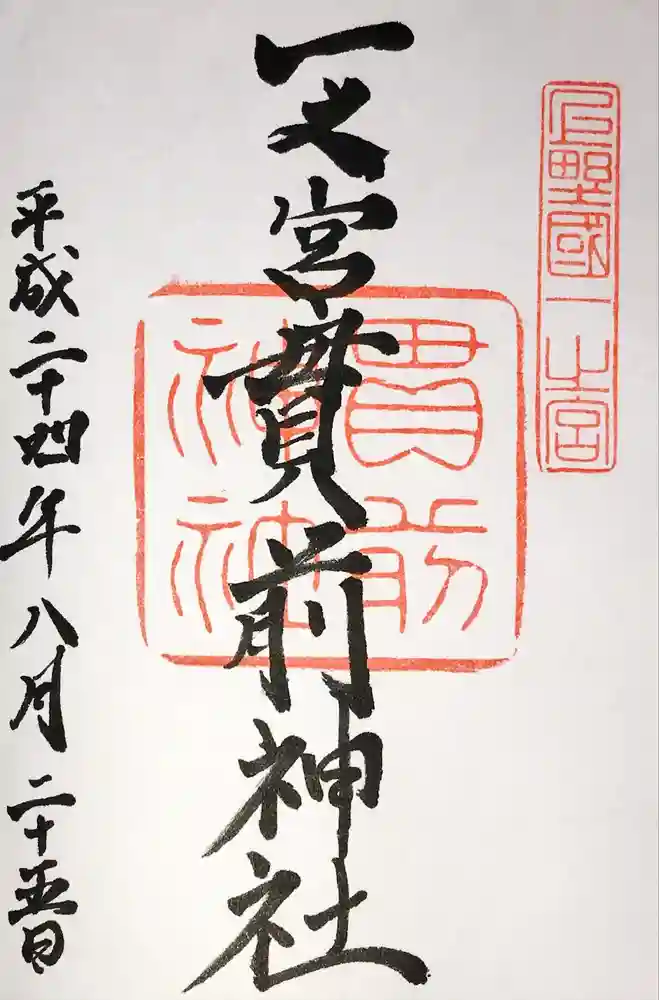 上野國一之宮
一之宮貫前神社
貫前
神社
平成二十四年八月二十五日